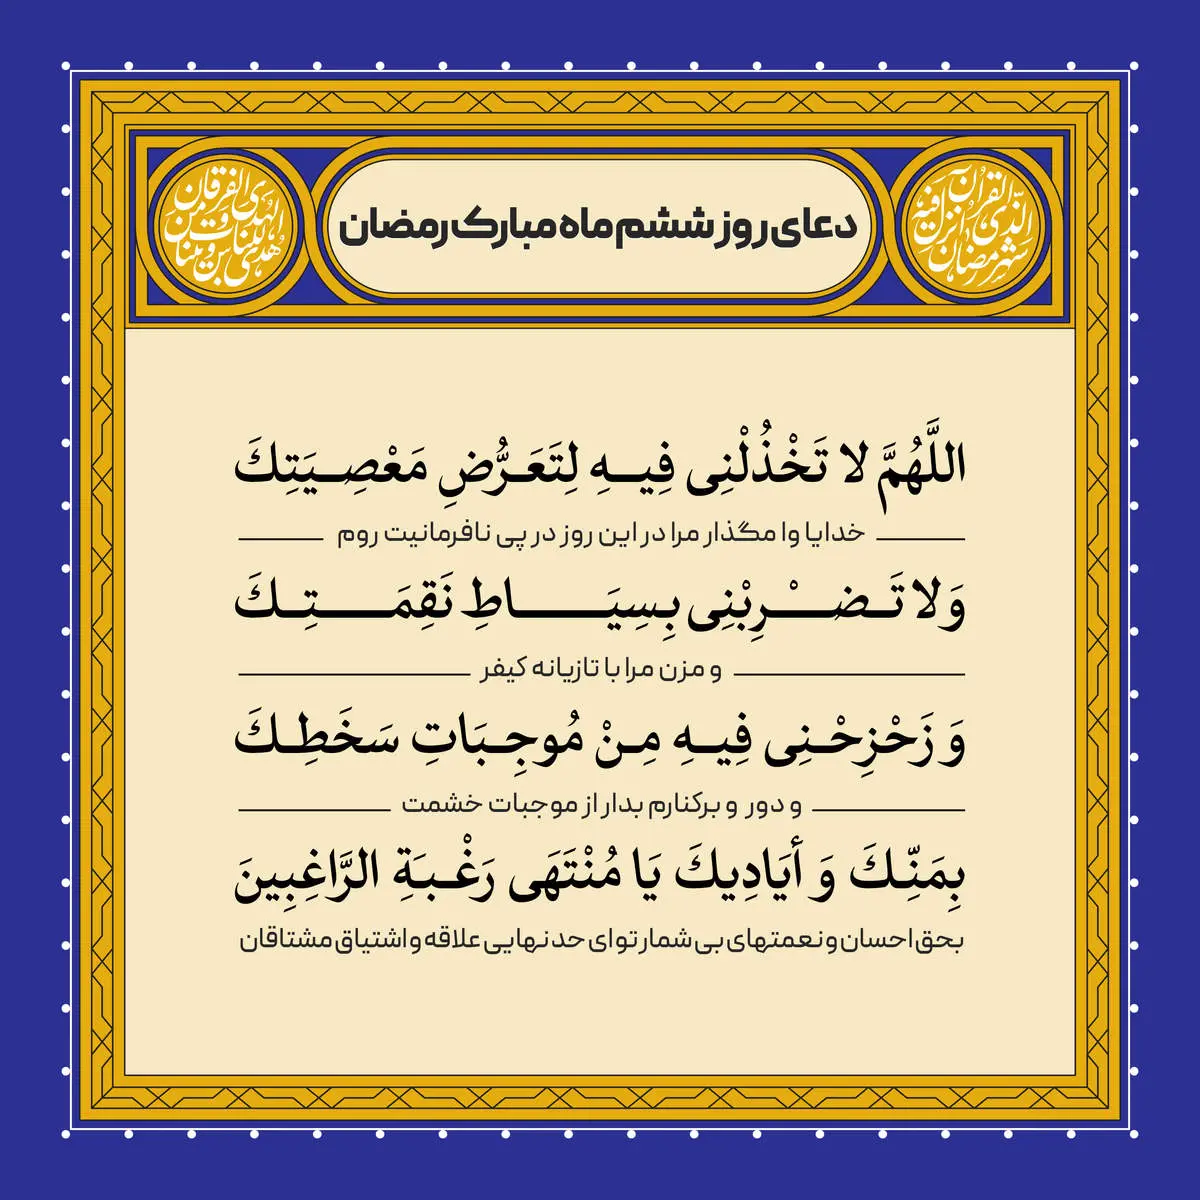 دعای روز ششم ماه مبارک رمضان
شهر رمضان الذی انزل فیه القرآن
هدی للناس و بینات من الهدی و الفرقان
اللَّهُمَّ لا تَخْذُلْنِی فِیهِ لِتَعَرُّضِ مَعْصِیَتِكَ
خدایا وا مگذار مرا در این روز در پی نافرمانیت روم
وَلا تَضْرِبْنِی بِسِیَاطِ نَقِمَتِكَ
و مزن مرا با تازیانه کیفر
وَ زَحْزِحْنِی فِیهِ مِنْ مُوجِبَاتِ سَخَطِكَ
و دور و برکنارم بدار از موجبات خشمت
بِمَنِّكَ وَ أَیَادِیكَ یَا مُنْتَهَی رَغْبَةِ الرَّاغِبِینَ
بحق احسان و نعمتهای بی شمار تو ای حد نهایی علاقه و اشتیاق مشتاقان